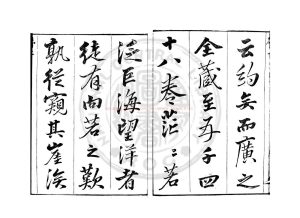 云約矣而廣之
全藏至五千四
十八卷茫〻若
泛巨海望洋者
徒有向若之歎
孰從窺其崖涘